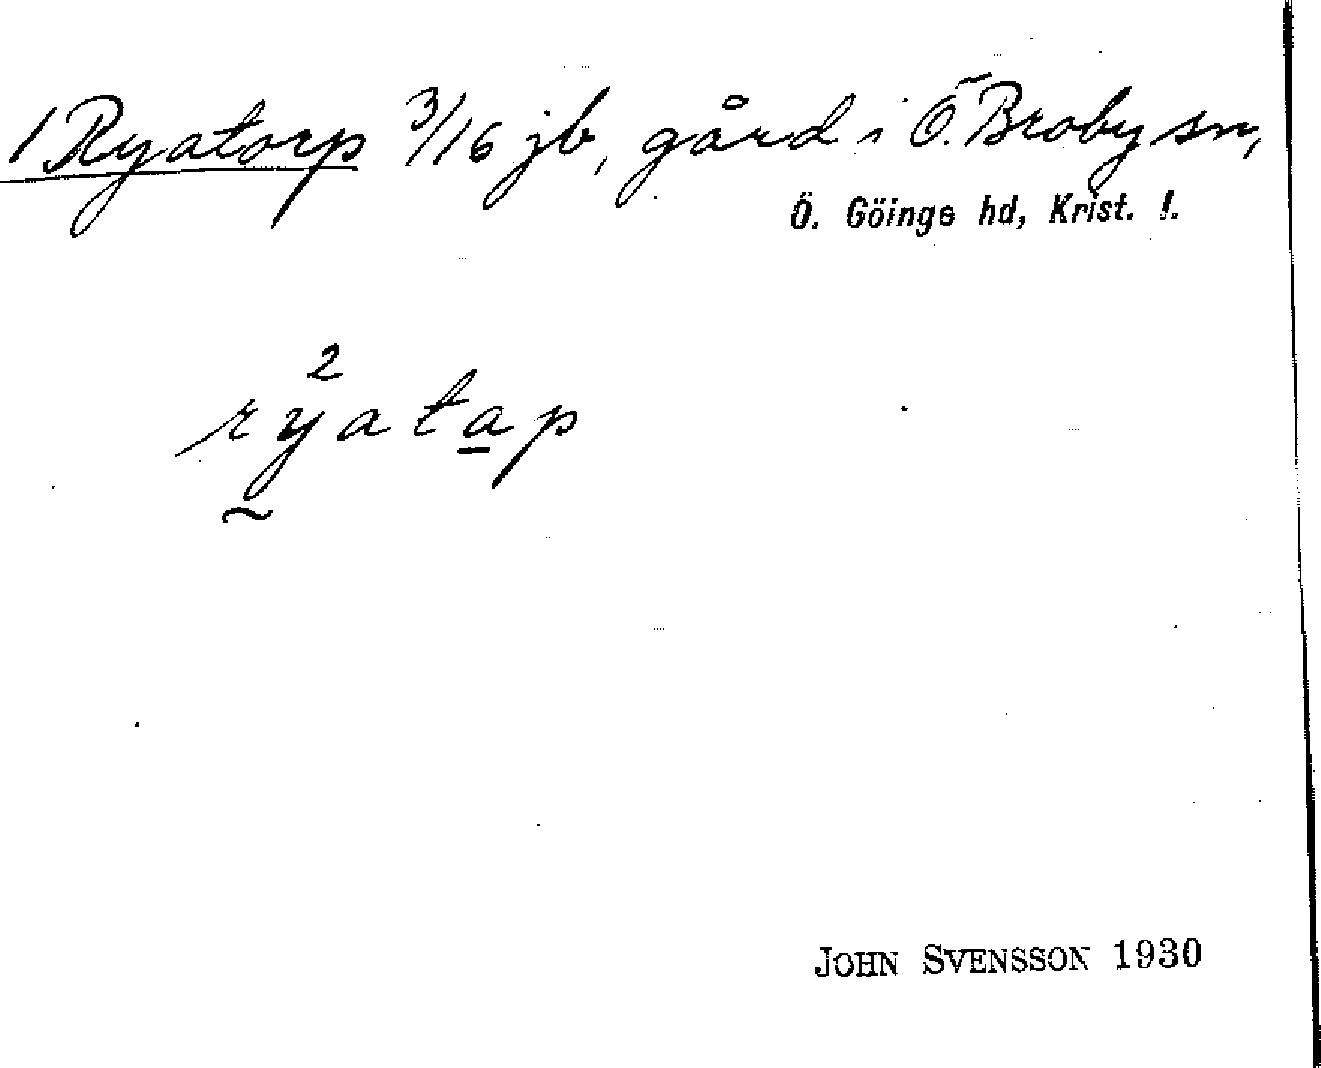 1 Ryatorp 3/16 jb, gård i Ö. Broby sn,
Ö. Göinge hd, Krist. l.
2
ryatap
JOHN SVENSSON 1930